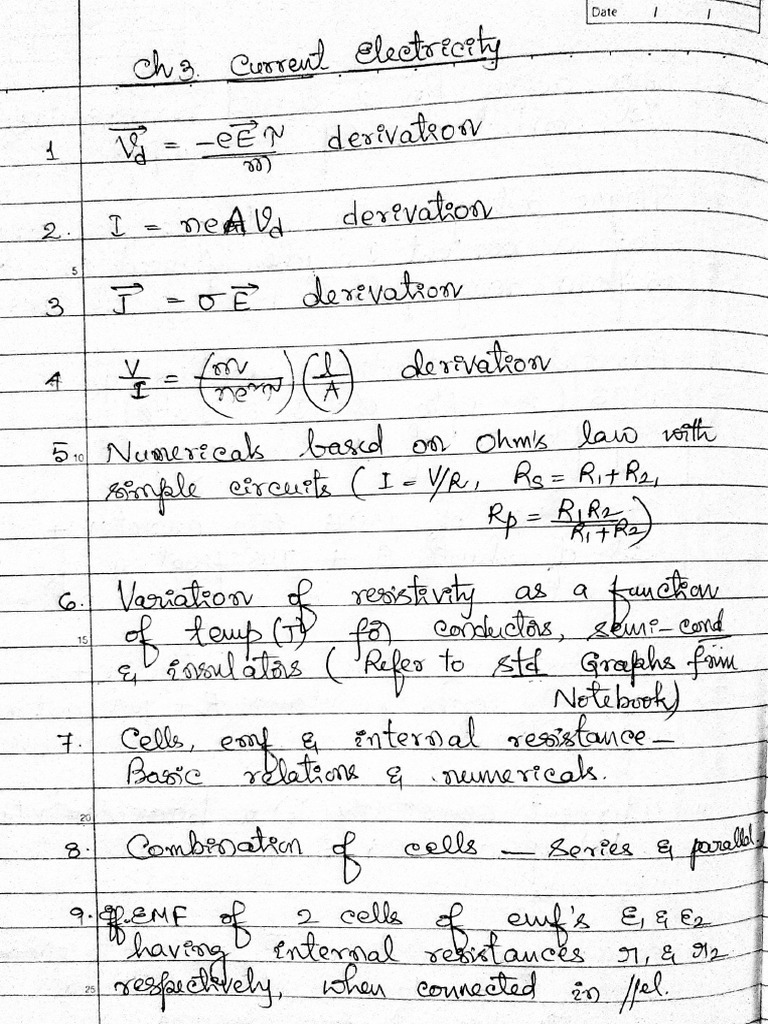 Date / /
Ch 3. Current Electricity
1 V⃗d = -eE⃗τ/m derivation
2. I = neAVd derivation
5
3 J⃗ = σE⃗ derivation
4 V/I = (m/ne²τ)(l/A) derivation
5 10 Numericals based on Ohm's law with
simple circuits ( I = V/R, Rs = R1+R2,
Rp = R1R2/R1+R2)
6. Variation of resistivity as a function
15 of temp (T) for conductors, semi-cond
& insulators ( Refer to std Graphs from
Notebook)
7. Cells, emf & internal resistance -
Basic relations & numericals.
20
8. Combination of cells - series & parallel.
9. Eq. EMF of 2 cells of emf's ε1 & ε2
having internal resistances r1 & r2
25 respectively, when connected in //el.